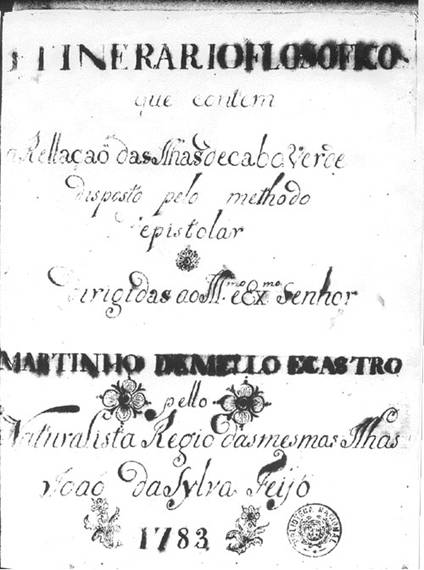 ITINERARIO FLOSOFICO
que contem
a Rellaçaõ das Ilhas de cabo Verde
disposto pelo methodo
epistolar
Dirigidas ao Ill.mo e Ex.mo Senhor
MARTINHO DE MELLO E CASTRO
pello
Naturalista Regio das mesmas Ilhas
Joaõ da Sylva Feijó
1783
BIBLIOTECA NACIONAL